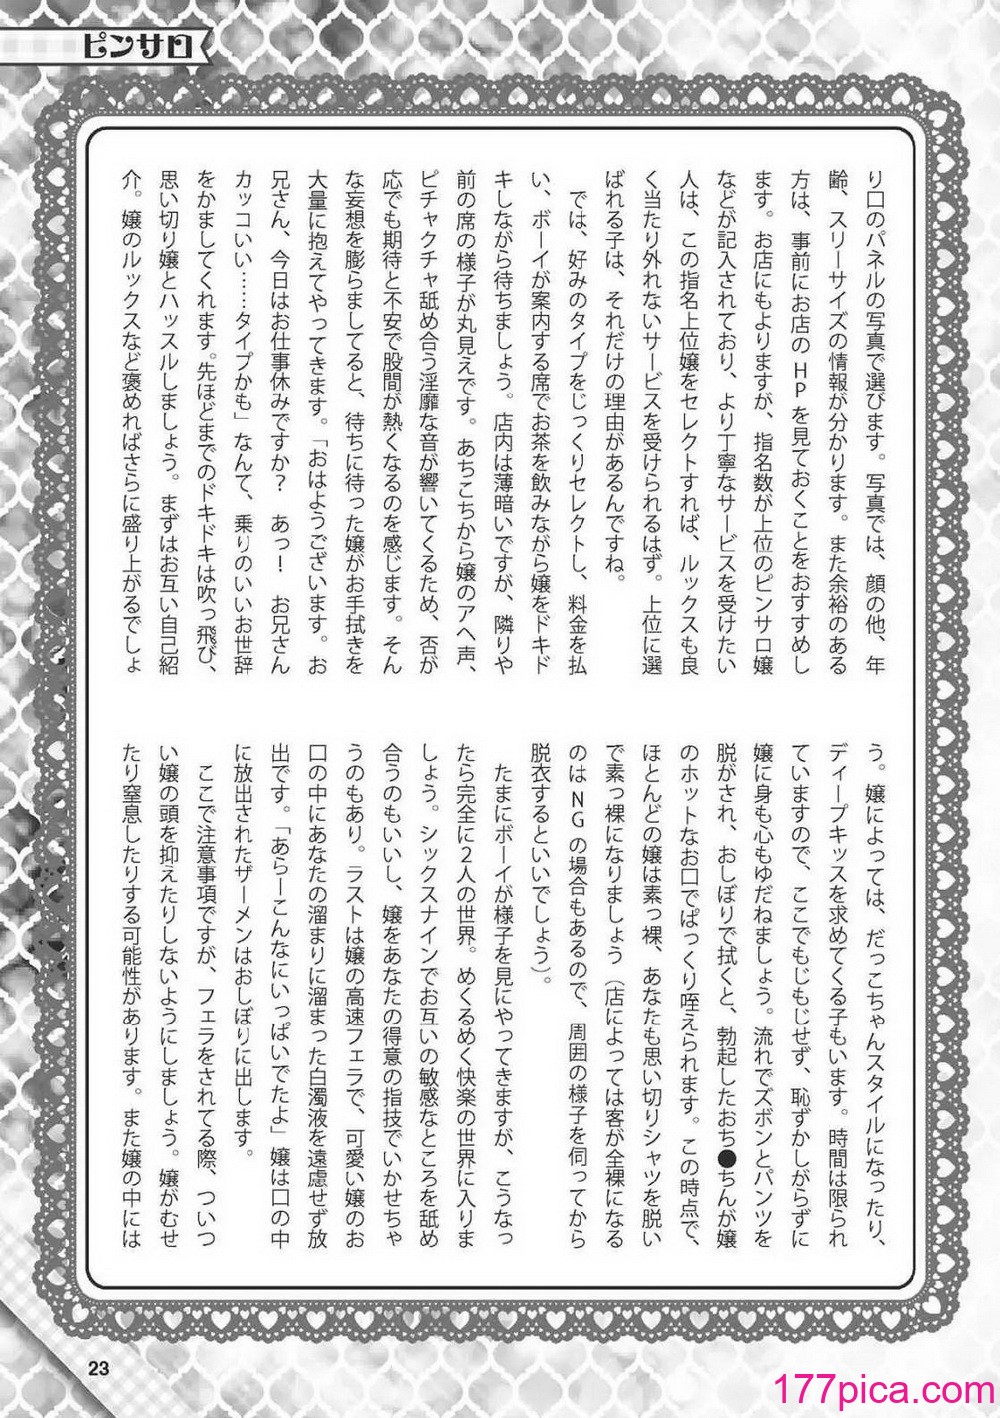 ピンサロ
り口のパネルの写真で選びます。写真では、顔の他、年
齢、スリーサイズの情報が分かります。また余裕のある
方は、事前にお店のHPを見ておくことをおすすめし
ます。お店にもよりますが、指名数が上位のピンサロ嬢
などが記入されており、より丁寧なサービスを受けたい
人は、この指名上位嬢をセレクトすれば、ルックスも良
く当たり外れないサービスを受けられるはず。上位に選
ばれる子は、それだけの理由があるんですね。
では、好みのタイプをじっくりセレクトし、料金を払
い、ボーイが案内する席でお茶を飲みながら嬢をドキド
キしながら待ちましょう。店内は薄暗いですが、隣りや
前の席の様子が丸見えです。あちこちから嬢のアへ声、
ピチャクチャ舐め合う淫靡な音が響いてくるため、否が
応でも期待と不安で股間が熱くなるのを感じます。そん
な妄想を膨らましてると、待ちに待った嬢がお手拭きを
大量に抱えてやってきます。「おはようございます。お
兄さん、今日はお仕事休みですか？　あっ！　お兄さん
カッコいい……タイプかも」なんて、乗りのいいお世辞
をかましてくれます。先ほどまでのドキドキは吹っ飛び、
思い切り嬢とハッスルしましょう。まずはお互い自己紹
介。嬢のルックスなど褒めればさらに盛り上がるでしょ
う。嬢によっては、だっこちゃんスタイルになったり、
ディープキッスを求めてくる子もいます。時間は限られ
ていますので、ここでもじもじせず、恥ずかしがらずに
嬢に身も心もゆだねましょう。流れでズボンとパンツを
脱がされ、おしぼりで拭くと、勃起したおち●ちんが嬢
のホットなお口でぱっくり咥えられます。この時点で、
ほとんどの嬢は素っ裸、あなたも思い切りシャツを脱い
で素っ裸になりましょう（店によっては客が全裸になる
のはNGの場合もあるので、周囲の様子を伺ってから
脱衣するといいでしょう）。
たまにボーイが様子を見にやってきますが、こうなっ
たら完全に2人の世界。めくるめく快楽の世界に入りま
しょう。シックスナインでお互いの敏感なところを舐め
合うのもいいし、嬢をあなたの得意の指技でいかせちゃ
うのもあり。ラストは嬢の高速フェラで、可愛い嬢のお
口の中にあなたの溜まりに溜まった白濁液を遠慮せず放
出です。「あらーこんなにいっぱいでたよ」嬢は口の中
に放出されたザーメンはおしぼりに出します。
ここで注意事項ですが、フェラをされてる際、ついつ
い嬢の頭を抑えたりしないようにしましょう。嬢がむせ
たり窒息したりする可能性があります。また嬢の中には
23
177pica.com